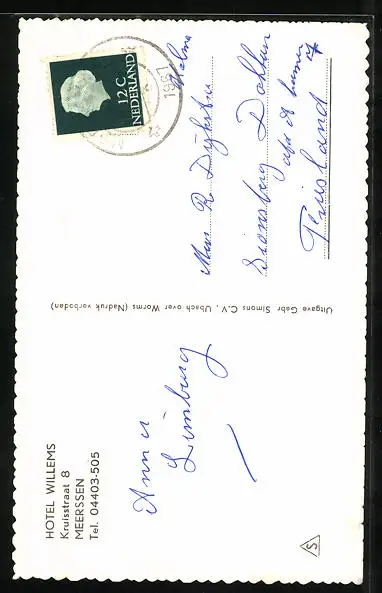 HOTEL WILLEMS
Kruisstraat 8
MEERSSEN
Tel. 04403-505
Anna
Limburg
Uitgave Gebr Simons C.V., Ubach over Worms (Nadruk verboden)
12 C
NEDERLAND
1967
Mevr R Dijkstra
Sionsberg Dokkum
afd
kamer
Friesland
S